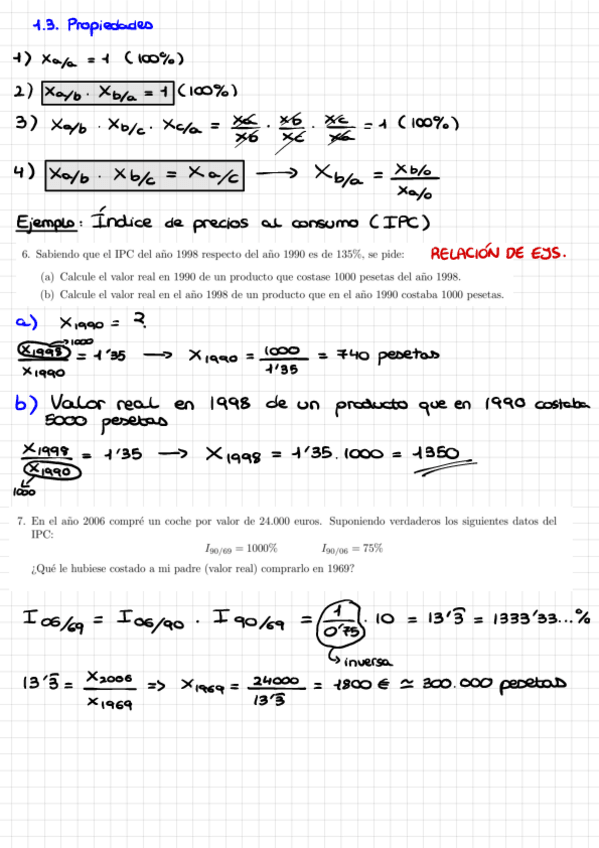 1.3. Propiedades
1) Xa/a = 1 (100%)
2) Xa/b · Xb/a = 1 (100%)
3) Xa/b · Xb/c · Xc/a = Xa/Xb · Xb/Xc · Xc/Xa = 1 (100%)
4) Xa/b · Xb/c = Xa/c → Xb/a = Xb/o / Xa/o
Ejemplo: Índice de precios al consumo (IPC)
6. Sabiendo que el IPC del año 1998 respecto del año 1990 es de 135%, se pide: RELACIÓN DE EJS.
(a) Calcule el valor real en 1990 de un producto que costase 1000 pesetas del año 1998.
(b) Calcule el valor real en el año 1998 de un producto que en el año 1990 costaba 1000 pesetas.
a) X1990 = ?
X1998 → 1000 / X1990 = 1'35 → X1990 = 1000 / 1'35 = 740 pesetas
b) Valor real en 1998 de un producto que en 1990 costaba
5000 pesetas
X1998 / X1990 = 1'35 → X1998 = 1'35 . 1000 = 1350
1000
7. En el año 2006 compré un coche por valor de 24.000 euros. Suponiendo verdaderos los siguientes datos del
IPC:
I90/69 = 1000% I90/06 = 75%
¿Qué le hubiese costado a mi padre (valor real) comprarlo en 1969?
I06/69 = I06/90 · I90/69 = 1 / 0'75 · 10 = 13'3̄ = 1333'33...%
inversa
13'3̄ = X2006 / X1969 => X1969 = 24000 / 13'3̄ = 1800 € ≃ 300.000 pesetas